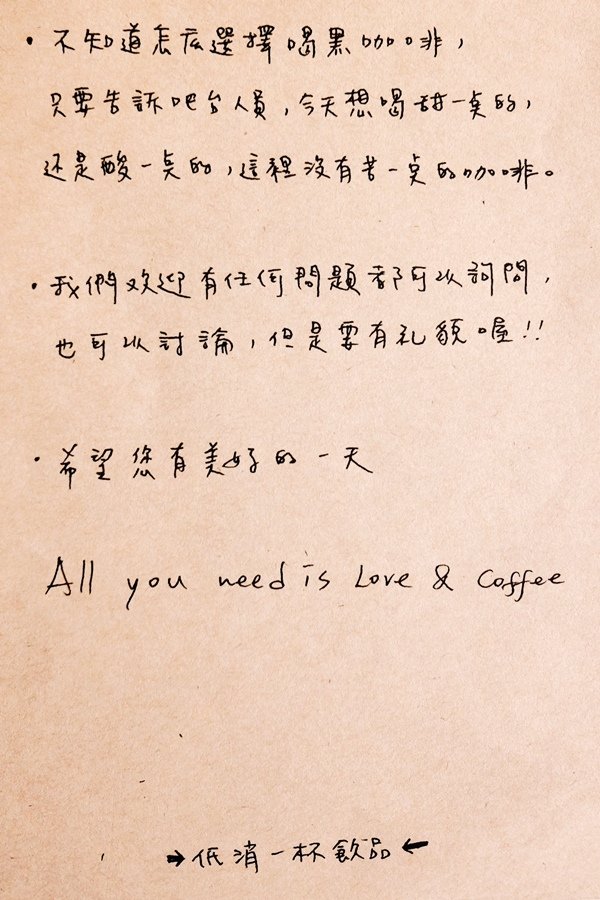 ·不知道怎麼選擇喝黑咖啡，
只要告訴吧台人員，今天想喝甜一點的，
还是酸一點的，這裡沒有苦一點的咖啡。
·我們欢迎有任何問題都可以詢問，
也可以討論，但是要有礼貌喔!!
·希望您有美好的一天
All you need is Love & Coffee
→低消一杯飲品←